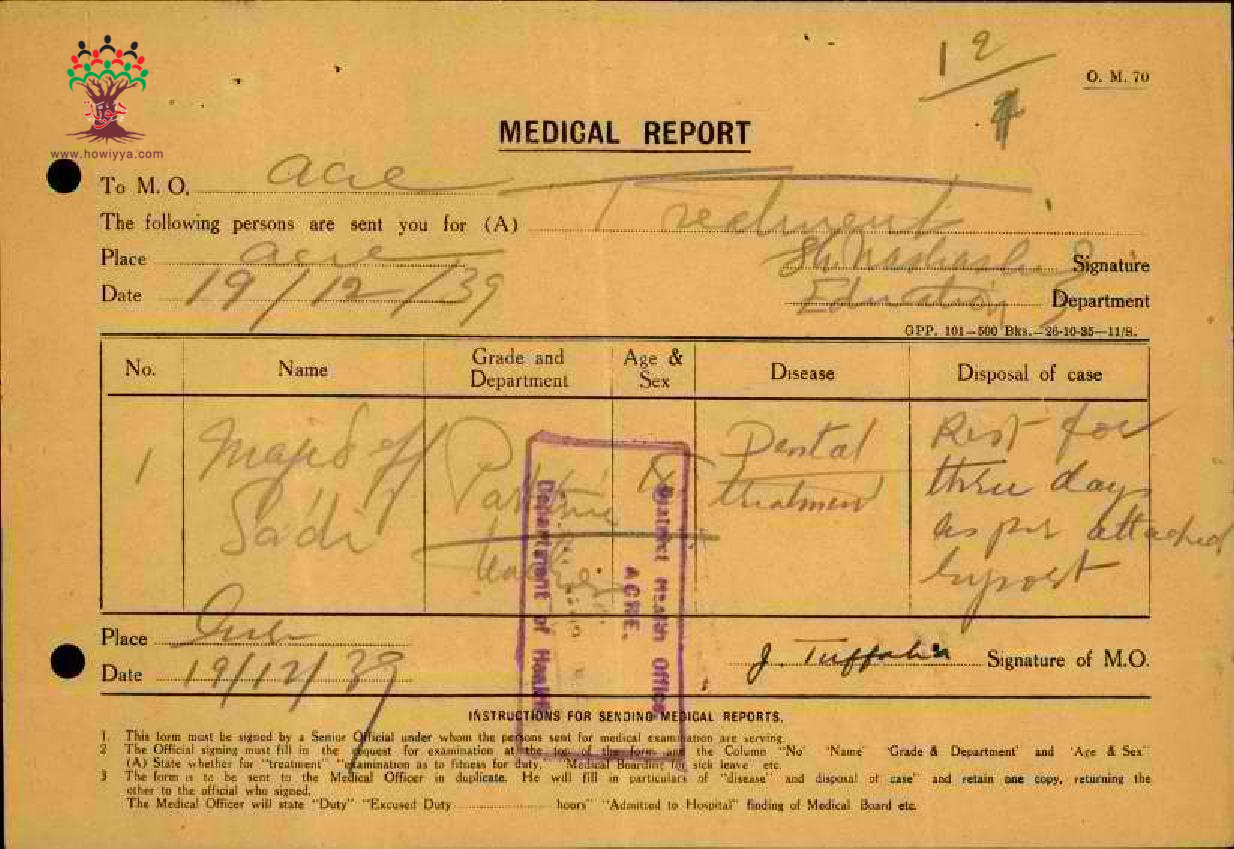 1 2
O. M. 70
www.howiyya.com
MEDICAL REPORT
To M. O. Acre
The following persons are sent you for (A) Treatment
Place Acre Signature
Date 19/12/39 Education Department
GPP. 101—500 Bks.—26-10-35—11/8.
No. Name Grade and Department Age & Sex Disease Disposal of case
1 Majid eff Sa'di Dental treatment Rest for
three days
as per attached
report
District Health Office
ACRE.
Department of Health
Place
Date 19/12/39 J. Tuffaha Signature of M.O.
INSTRUCTIONS FOR SENDING MEDICAL REPORTS.
1. This form must be signed by a Senior Official under whom the persons sent for medical examination are serving.
2 The Official signing must fill in the request for examination at the top of the form and the Column "No" "Name" "Grade & Department" and "Age & Sex"
(A) State whether for "treatment" "examination as to fitness for duty," "Medical Boarding for sick leave" etc.
3 The form is to be sent to the Medical Officer in duplicate. He will fill in particulars of "disease" and disposal of case" and retain one copy, returning the
other to the official who signed.
The Medical Officer will state "Duty" "Excused Duty ........ hours" "Admitted to Hospital" finding of Medical Board etc.